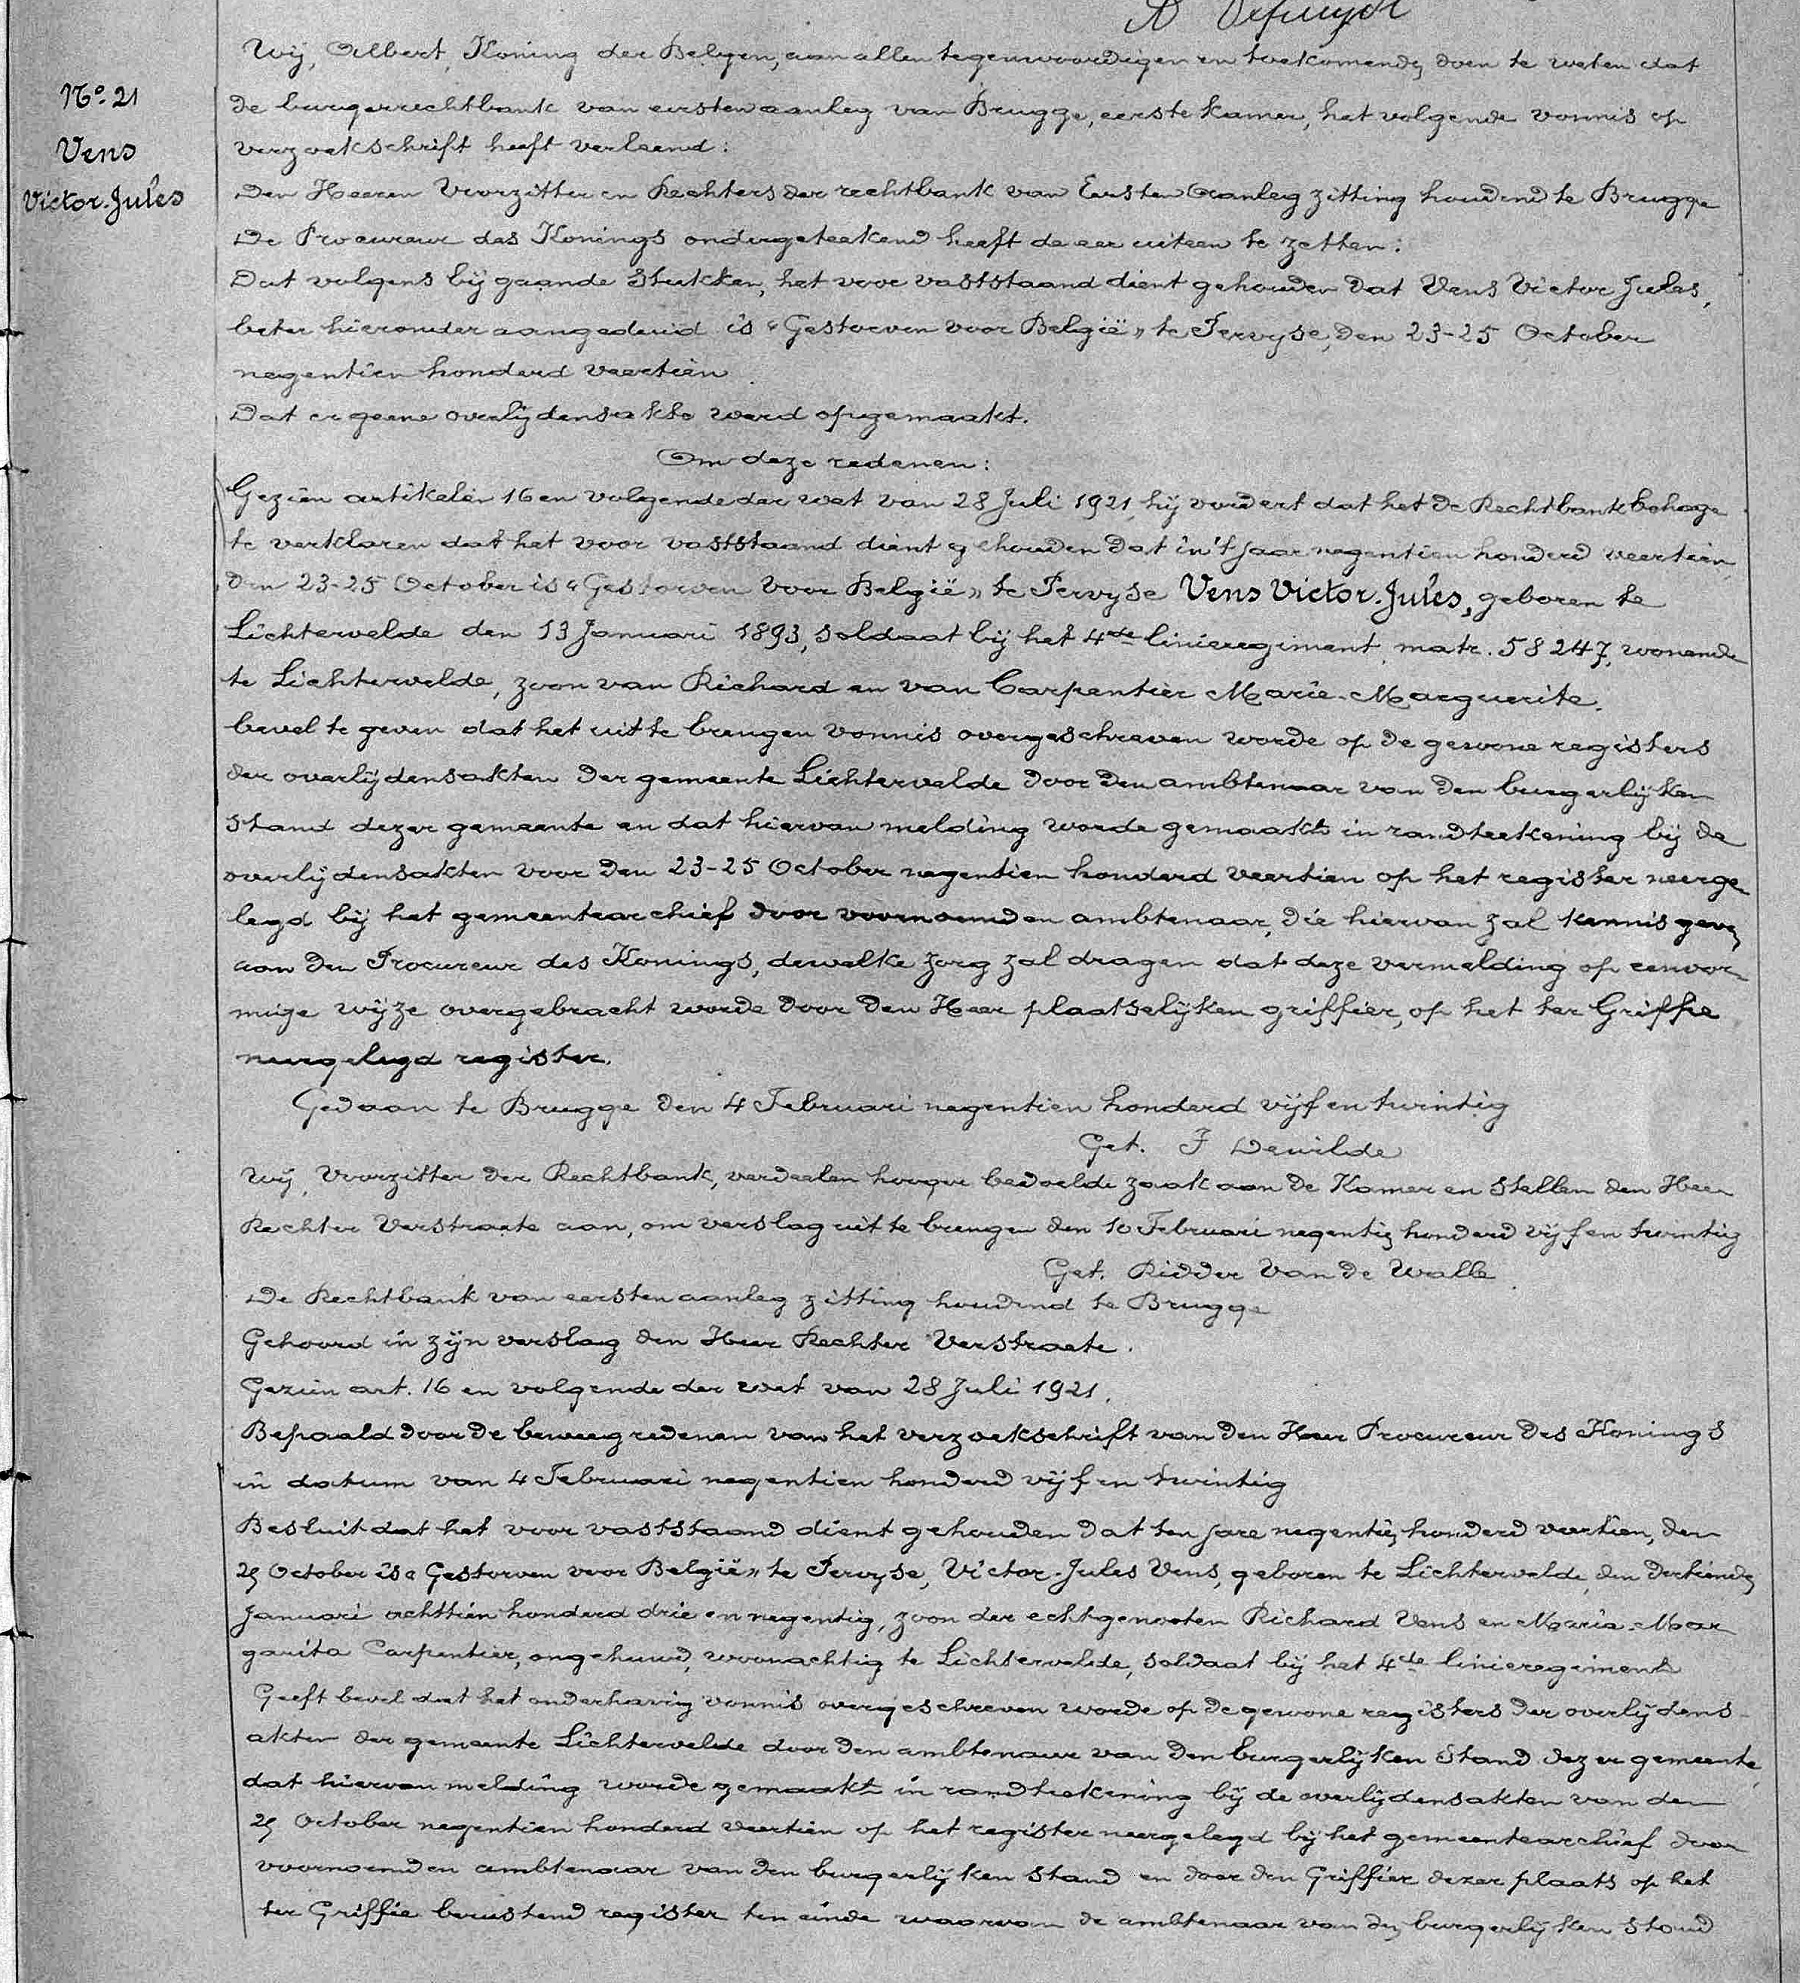 Wij, Albert, Koning der Belgen, aan allen tegenwoordigen en toekomende, doen te weten dat
No. 21
de burgerrechtbank van eersten aanleg van Brugge, eerste kamer, het volgende vonnis op
Vens
verzoekschrift heeft verleend:
Victor-Jules
Den Heeren Voorzitter en Rechters der rechtbank van Eersten Aanleg zitting houdend te Brugge
De Procureur des Konings ondergeteekend heeft de eer uiteen te zetten:
Dat volgens bijgaande stukken, het voor vaststaand dient gehouden dat Vens Victor Jules,
beter hieronder aangeduid is "Gestorven voor België" te Pervyse, den 23-25 October
negentien honderd veertien
Dat er geene overlijdensakte werd opgemaakt.
Om deze redenen:
Gezien artikelen 16 en volgende der wet van 28 Juli 1921, hij vordert dat het de Rechtbank behage
te verklaren dat het voor vaststaand dient gehouden dat in 't jaar negentien honderd veertien,
den 23-25 October is "Gestorven voor België" te Pervyse Vens Victor-Jules, geboren te
Lichtervelde den 13 Januari 1893, soldaat bij het 4de linieregiment, matr. 58247, wonende
te Lichtervelde, zoon van Richard en van Carpentier Marie-Marguerite.
bevel te geven dat het uit te brengen vonnis overgeschreven worde op de gewone registers
der overlijdensakten der gemeente Lichtervelde door den ambtenaar van den burgerlijken
stand dezer gemeente en dat hiervan melding worde gemaakt in randteekening bij de
overlijdensakten voor den 23-25 October negentien honderd veertien op het register neerge-
legd bij het gemeentearchief door voornoemden ambtenaar, die hiervan zal kennis geven
aan den Procureur des Konings, dewelke zorg zal dragen dat deze vermelding op eenvor-
mige wijze overgebracht worde door den Heer plaatselijken griffier, op het ter Griffie
neergelegd register.
Gedaan te Brugge den 4 Februari negentien honderd vijf en twintig
Get. J Dewilde
Wij, Voorzitter der Rechtbank, verdeelen hooger bedoelde zaak aan de Kamer en stellen den Heer
Rechter Verstraete aan, om verslag uit te brengen den 10 Februari negentien honderd vijf en twintig
Get. Ridder Van de Walle
De Rechtbank van eersten aanleg zitting houdend te Brugge
Gehoord in zijn verslag den Heer Rechter Verstraete.
Gezien art. 16 en volgende der wet van 28 Juli 1921.
Bepaald door de beweegredenen van het verzoekschrift van den Heer Procureur des Konings
in datum van 4 Februari negentien honderd vijf en twintig
Besluit dat het voor vaststaand dient gehouden dat ten jare negentien honderd veertien, den
25 October is "Gestorven voor België" te Pervyse, Victor-Jules Vens, geboren te Lichtervelde, den dertienden
Januari achttien honderd drie en negentig, zoon der echtgenooten Richard Vens en Maria-Mar
garita Carpentier, ongehuwd, woonachtig te Lichtervelde, soldaat bij het 4de linieregiment
Geeft bevel dat het onderhavig vonnis overgeschreven worde op de gewone registers der overlijdens-
akten der gemeente Lichtervelde door den ambtenaar van den burgerlijken stand dezer gemeente,
dat hiervan melding worde gemaakt in randteekening bij de overlijdensakten van den
25 October negentien honderd veertien op het register neergelegd bij het gemeentearchief door
voornoemden ambtenaar van den burgerlijken stand en door den Griffier dezer plaats op het
ter Griffie berustend register ten einde waarvan de ambtenaar van den burgerlijken stand